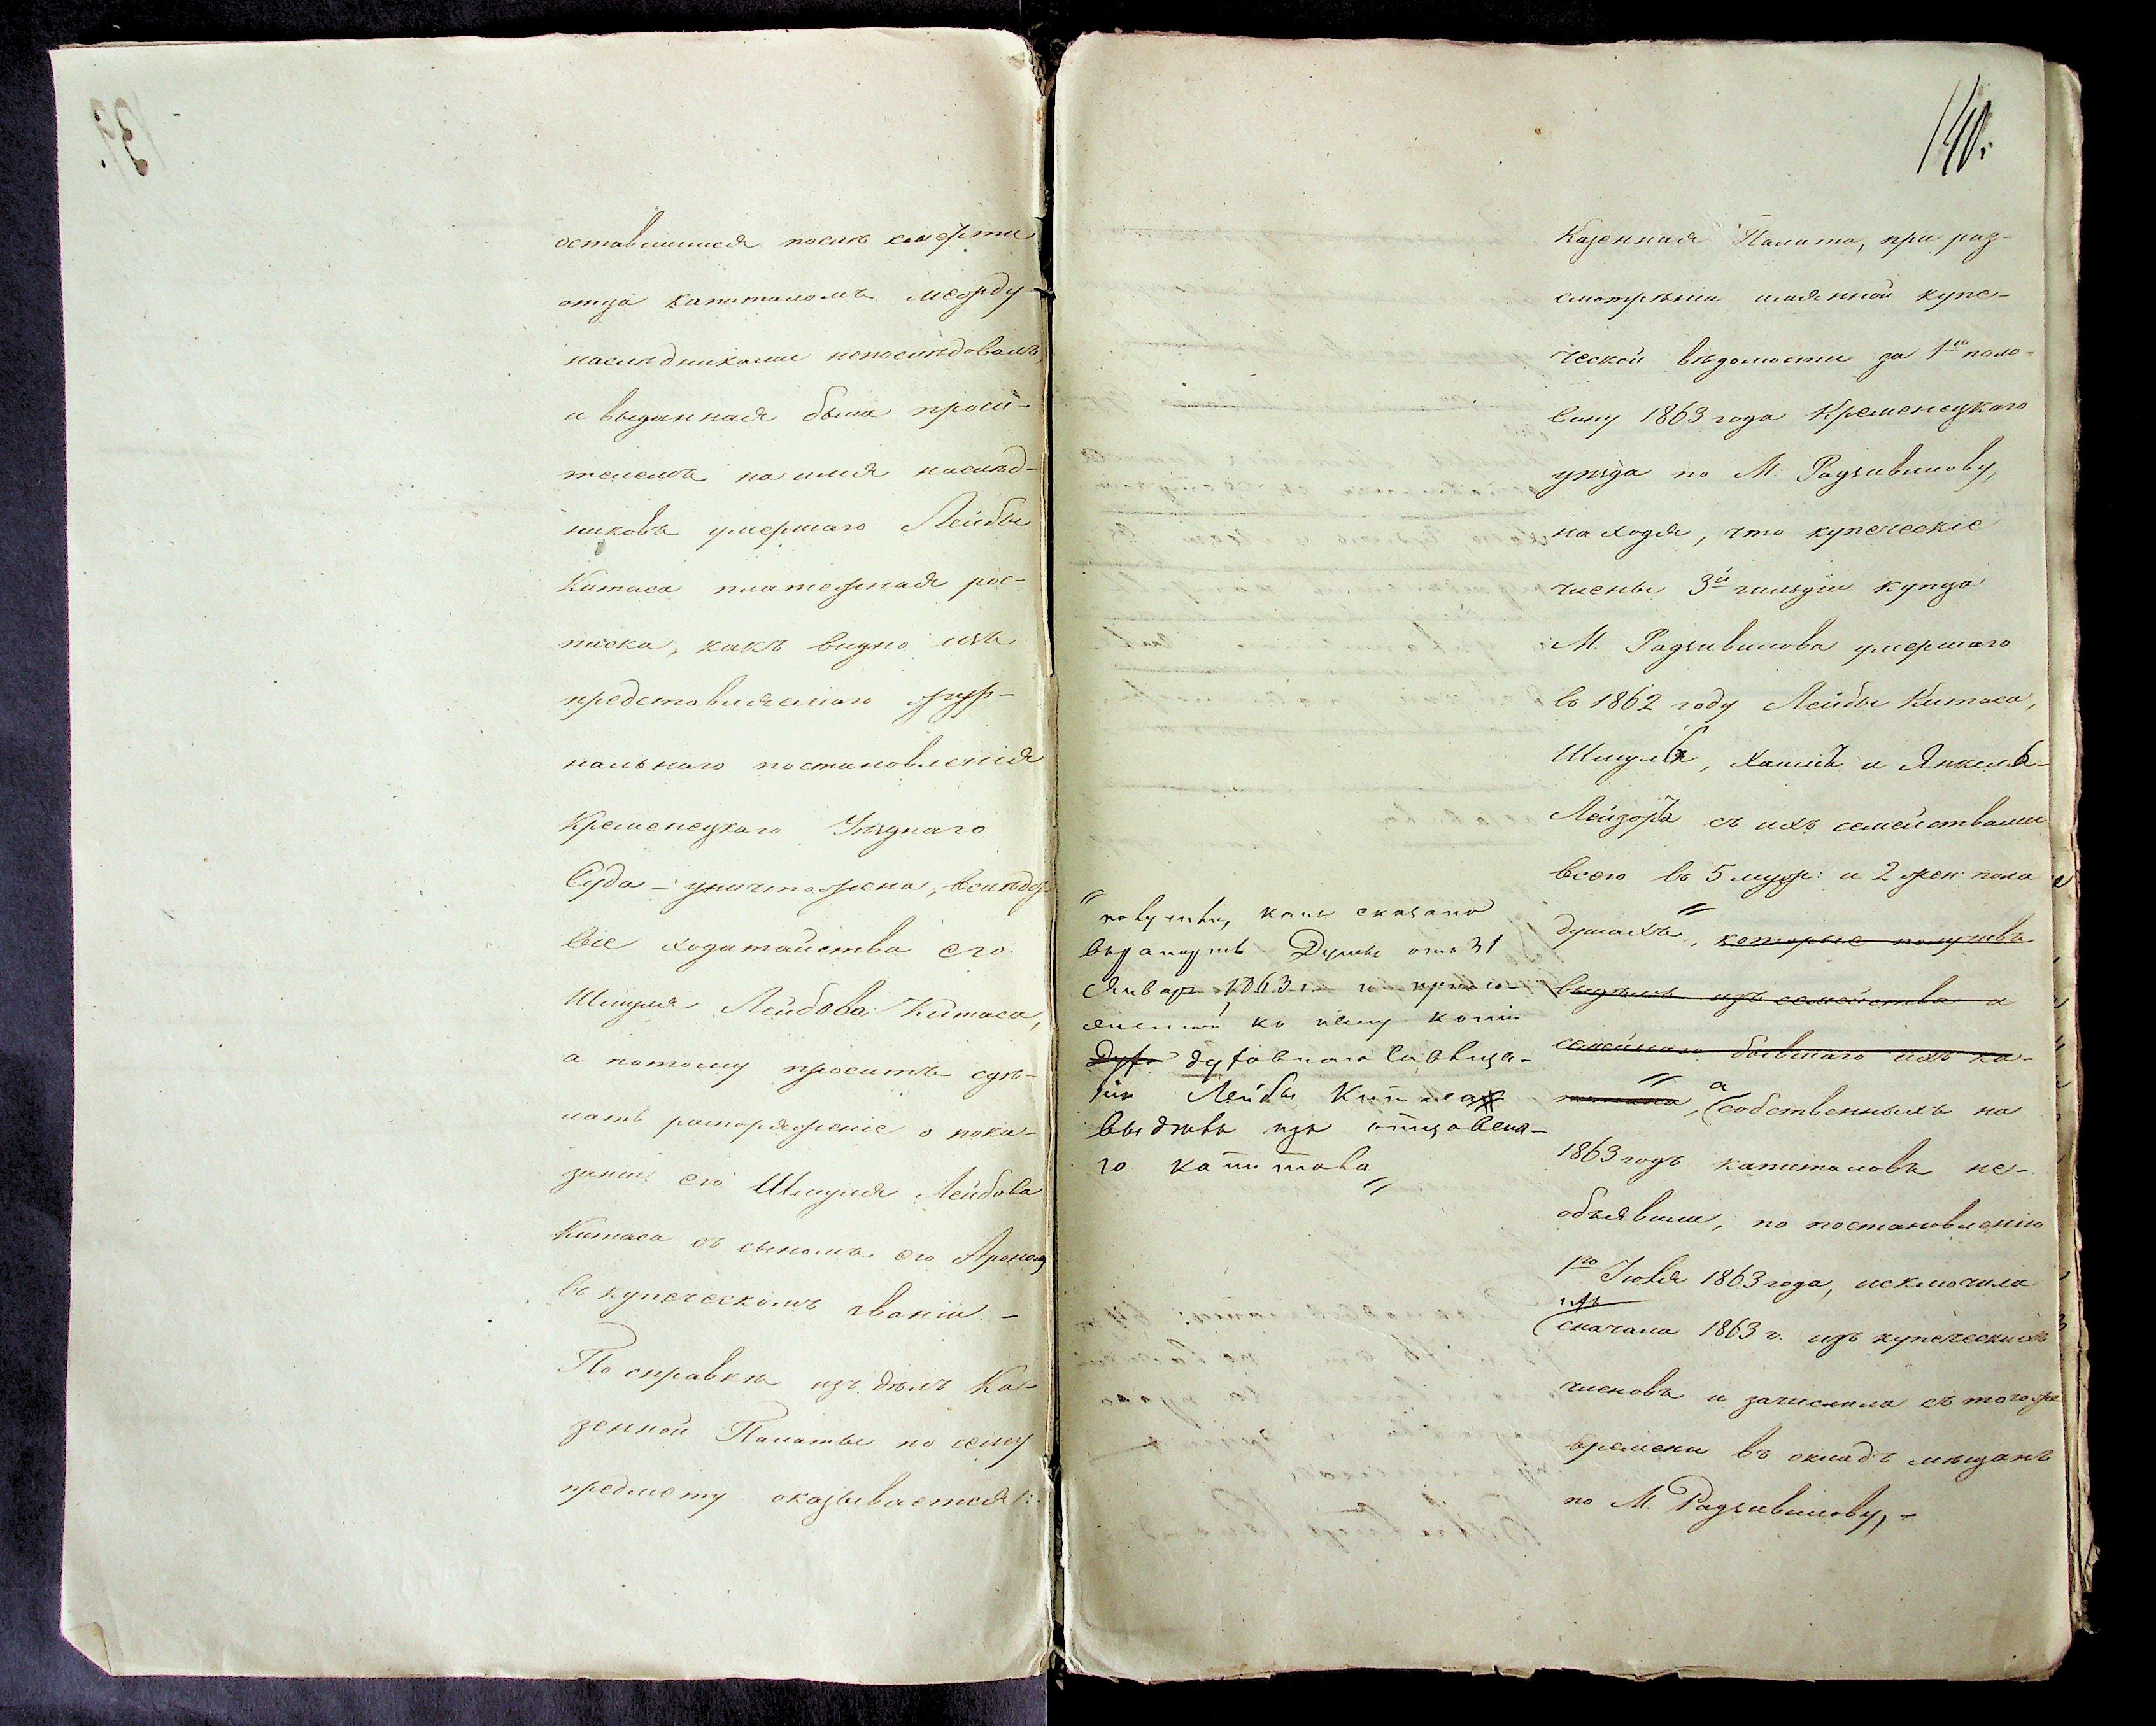 оставшимися после смерти
отца капиталомъ между
наслѣдниками непослѣдовалъ
и выданная была проси-
телемъ на имя наслѣд-
никовъ умершаго Лейбы
Китаса платежная рос-
писка, какъ видно изъ
представляемаго жур-
нальнаго постановленія
Кременецкаго Уѣзднаго
Суда – уничтожена, вслѣдст-
віе ходатайства его
Шмуля Лейбова Китаса,
а потому проситъ сдѣ-
лать распоряженіе о пока-
заніи его Шмуля Лейбова
Китаса съ сыномъ его Арономъ
въ купеческомъ званіи. –
По справкѣ изъ дѣлъ Ка-
зенной Палаты по сему
предмету оказывается:
140.
Казенная Палата, при раз-
смотрѣніи имянной купе-
ческой вѣдомости за 1ю поло-
вину 1863 года Кременецкаго
уѣзда по М. Радзивилову,
находя, что купеческіе
члены 3й гильдіи купца
М. Радзивилова умершаго
въ 1862 году Лейбы Китаса,
Шмуль, Хаимъ и Янкель-
Лейзоръ съ ихъ семействами
всего въ 5 муж: и 2 жен: пола
душахъ", которые получивъ
выдѣлъ изъ семейства и
семейнаго бывшаго ихъ ка-
питала", а собственныхъ на
1863 годъ капиталовъ не-
объявили, по постановленію
1го Іюля 1863 года, исключила
ихъ
сначала 1863 г. изъ купеческихъ
членовъ и зачислила съ тогоже
времени въ окладъ мѣщанъ
по М. Радзивилову, –
"получивъ, какъ сказано
въ рапортѣ Думы отъ 31
Января 1863 г. и прило-
женной къ нему копіи
Духо духовнаго завѣща-
нія Лейбы Китаса
выдѣлъ изъ отцовска-
го капитала"